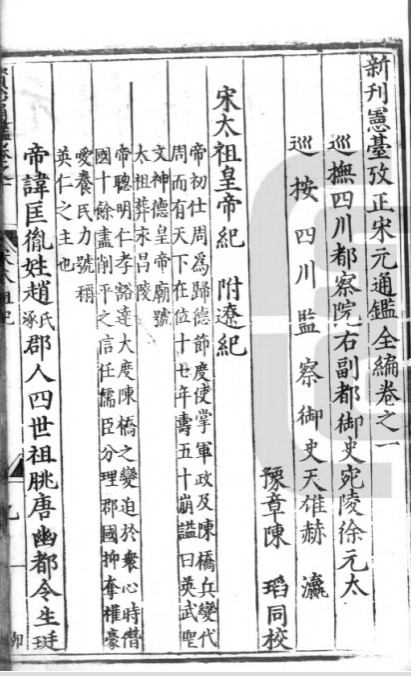 新刊憲臺攷正宋元通鑑全編卷之一
巡撫四川都察院右副都御史宛陵徐元太
巡按四川監察御史天雄赫瀛
豫章陳瑫同校
宋太祖皇帝紀 附遼紀
帝初仕周為歸德節度使掌軍政及陳橋兵變代
周而有天下在位十七年壽五十崩謚曰英武聖
文神德皇帝廟號
太祖葬永昌陵
帝聰明仁孝豁達大度陳橋之變迫於衆心時僭
國十餘盡削平之信任儒臣分理郡國抑奪權豪
愛養民力號稱
英仁之主也
帝諱匡胤姓趙氏涿郡人四世祖朓唐幽都令生珽